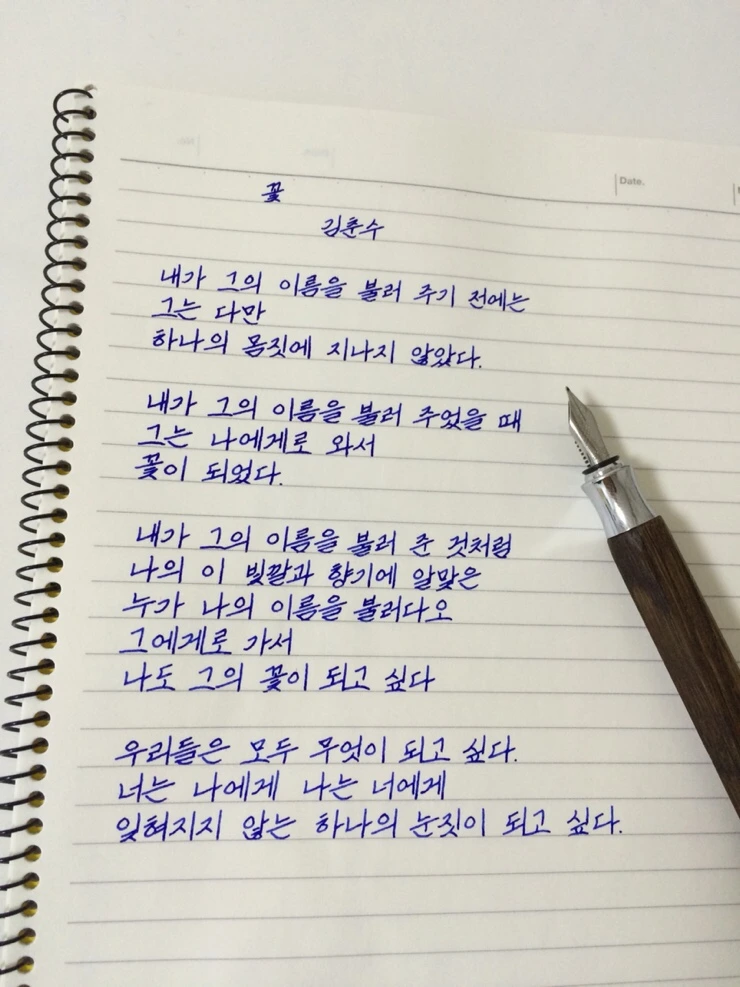 Date.
꽃
김춘수
내가 그의 이름을 불러 주기 전에는
그는 다만
하나의 몸짓에 지나지 않았다.
내가 그의 이름을 불러 주었을 때
그는 나에게로 와서
꽃이 되었다.
내가 그의 이름을 불러 준 것처럼
나의 이 빛깔과 향기에 알맞은
누가 나의 이름을 불러다오
그에게로 가서
나도 그의 꽃이 되고 싶다
우리들은 모두 무엇이 되고 싶다.
너는 나에게 나는 너에게
잊혀지지 않는 하나의 눈짓이 되고 싶다.